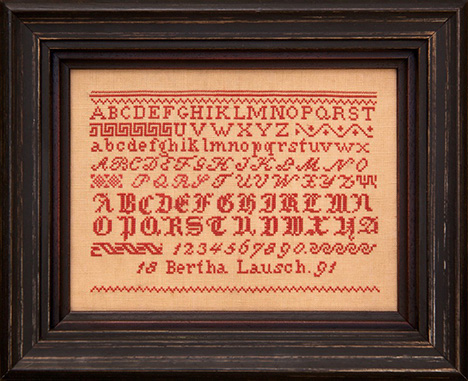 ABCDEFGHIKLMNOPQRST
UVWXYZ
abcdefghiklmnopqrstuvwx
ABCDEFGHIKLMNO
PQRSTUVWXYZ
ABCDEFGHIKLMN
OPQRSTUVWXYZ
1234567890.
18 Bertha Lausch. 91